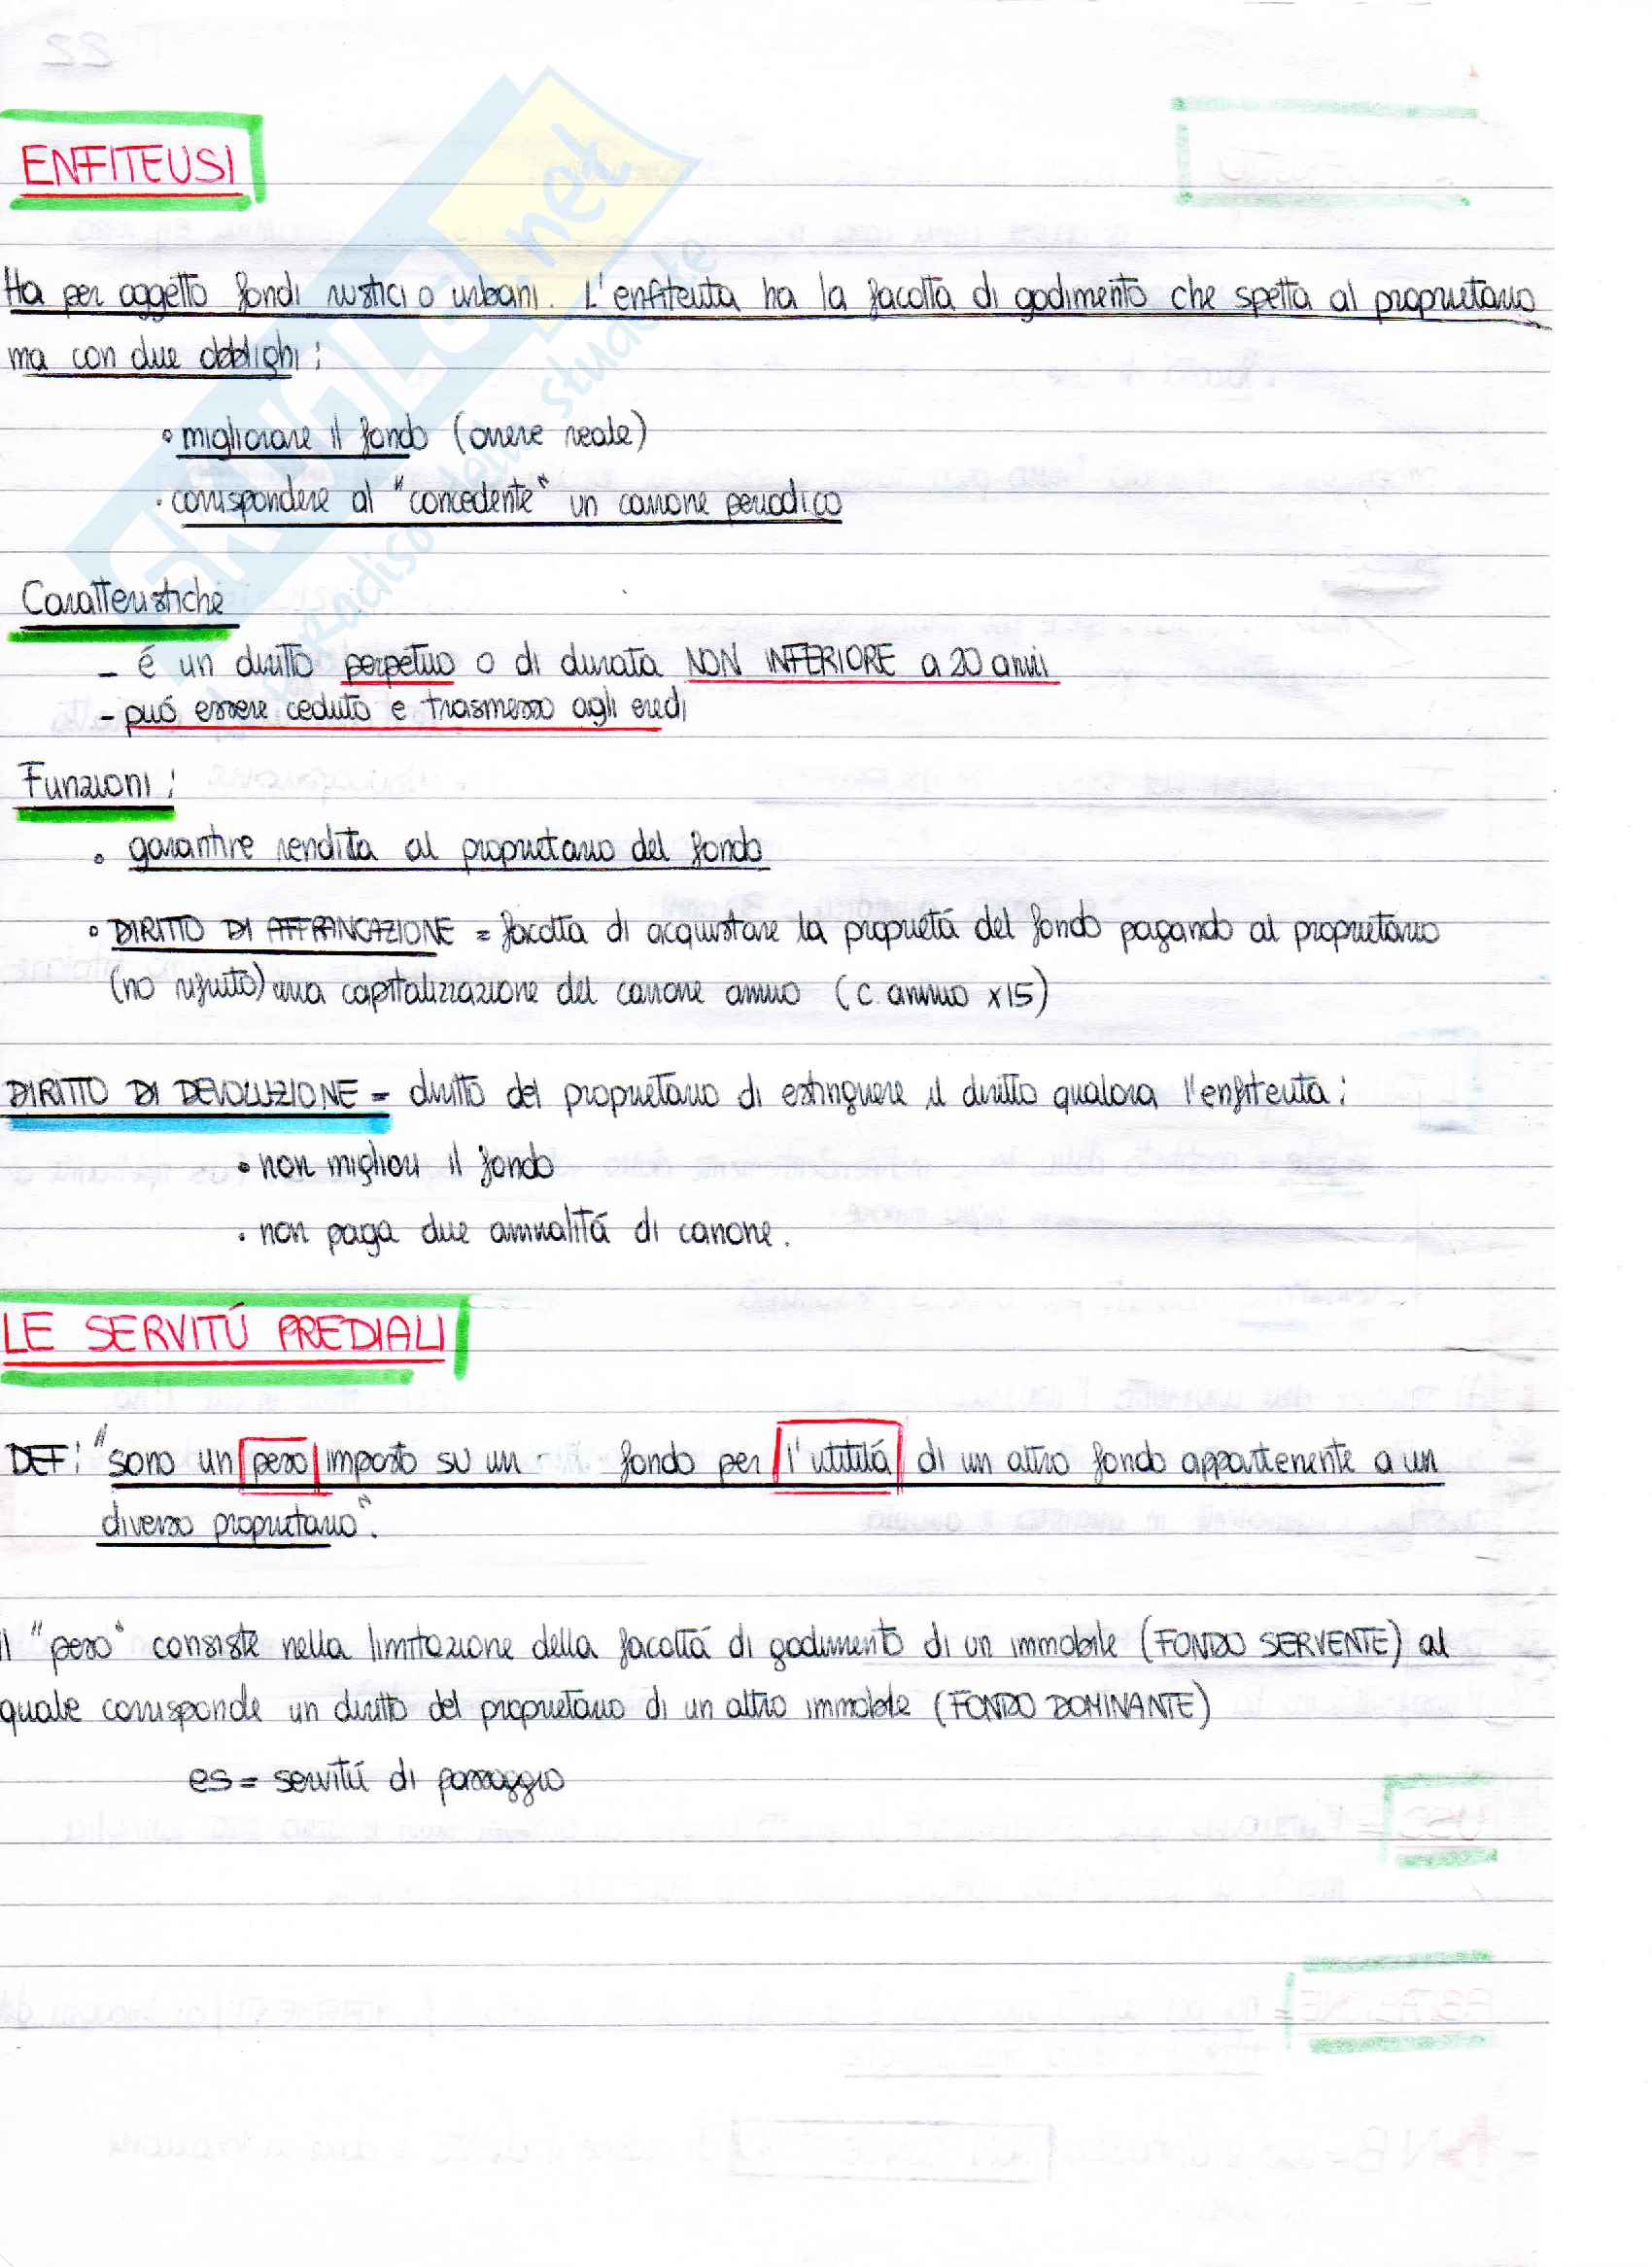 ENFITEUSI
Ha per oggetto fondi rustici o urbani. L'enfiteuta ha la facoltà di godimento che spetta al proprietario
ma con due obblighi:
• migliorare il fondo (onere reale)
• corrispondere al "concedente" un canone periodico
Caratteristiche
- é un diritto perpetuo o di durata NON INFERIORE a 20 anni
- puó essere ceduto e trasmesso agli eredi
Funzioni:
• garantire rendita al proprietario del fondo
• DIRITTO DI AFFRANCAZIONE = facoltà di acquistare la proprietá del fondo pagando al proprietario
(no rifiuto) una capitalizzazione del canone annuo (c. annuo x15)
DIRITTO DI DEVOLUZIONE = diritto del proprietario di estinguere il diritto qualora l'enfiteuta:
• non migliori il fondo
• non paga due annualitá di canone.
LE SERVITÚ PREDIALI
DEF: "sono un peso imposto su un fondo per l'utilitá di un altro fondo appartenente a un
diverso proprietario".
Il "peso" consiste nella limitazione della facoltá di godimento di un immobile (FONDO SERVENTE) al
quale corrisponde un diritto del proprietario di un altro immobile (FONDO DOMINANTE)
es = servitú di passaggio